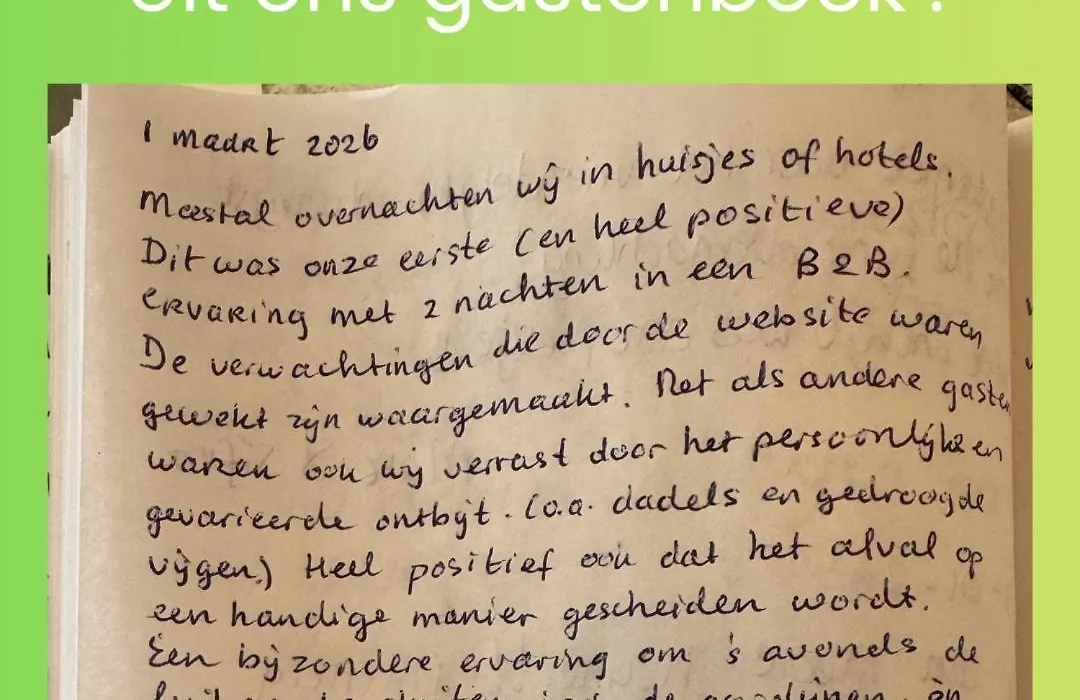 uit ons gastenboek :
1 maart 2026
Meestal overnachten wij in huisjes of hotels.
Dit was onze eerste (en heel positieve)
ervaring met 2 nachten in een B&B.
De verwachtingen die door de website waren
gewekt zijn waargemaakt. Net als andere gasten
waren ook wij verrast door het persoonlijke en
gevarieerde ontbijt. (o.a. dadels en gedroogde
vijgen.) Heel positief ook dat het afval op
een handige manier gescheiden wordt.
Een bijzondere ervaring om 's avonds de
de gordijnen èn